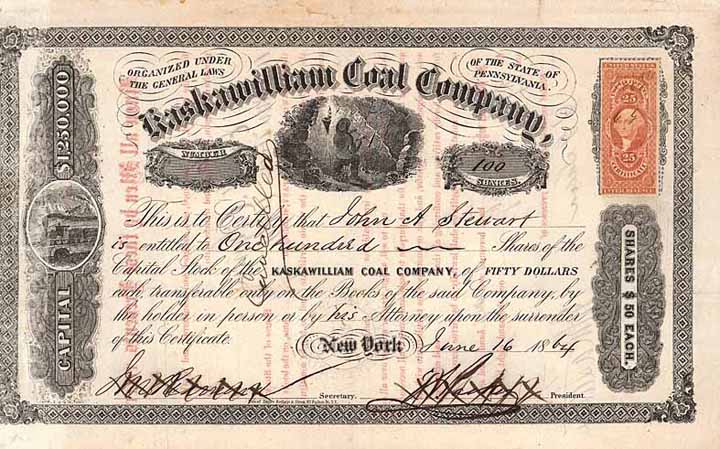 ORGANIZED UNDER
THE GENERAL LAWS
OF THE STATE OF
PENNSYLVANIA.
Kaskawilliam Coal Company,
NUMBER
100
SHARES
25
25
CERTIFICATE
CAPITAL $1250,000
This is to Certify that John A Stewart
is entitled to One hundred Shares of the
Capital Stock of the KASKAWILLIAM COAL COMPANY, of FIFTY DOLLARS
each, transferable only on the Books of the said Company, by
the holder in person or by his Attorney upon the surrender
of this Certificate.
New York June 16 1864
SHARES $50 EACH.
Cancelled
Secretary.
President.